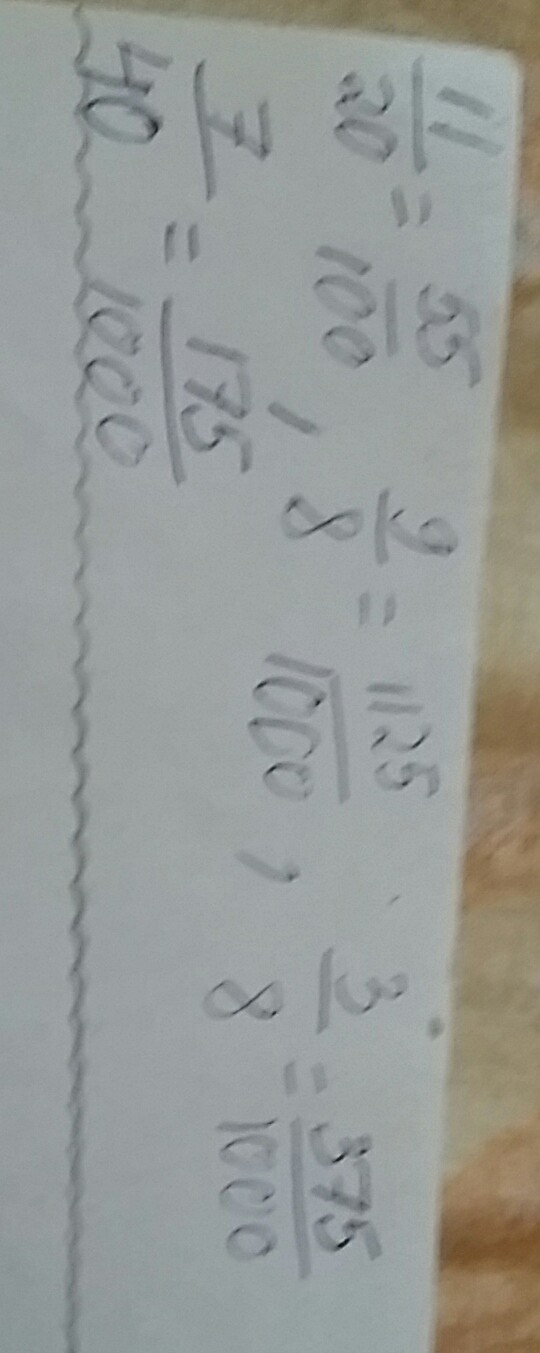 11/20 = 55/100, 9/8 = 1125/1000, 3/8 = 375/1000
7/40 = 175/1000